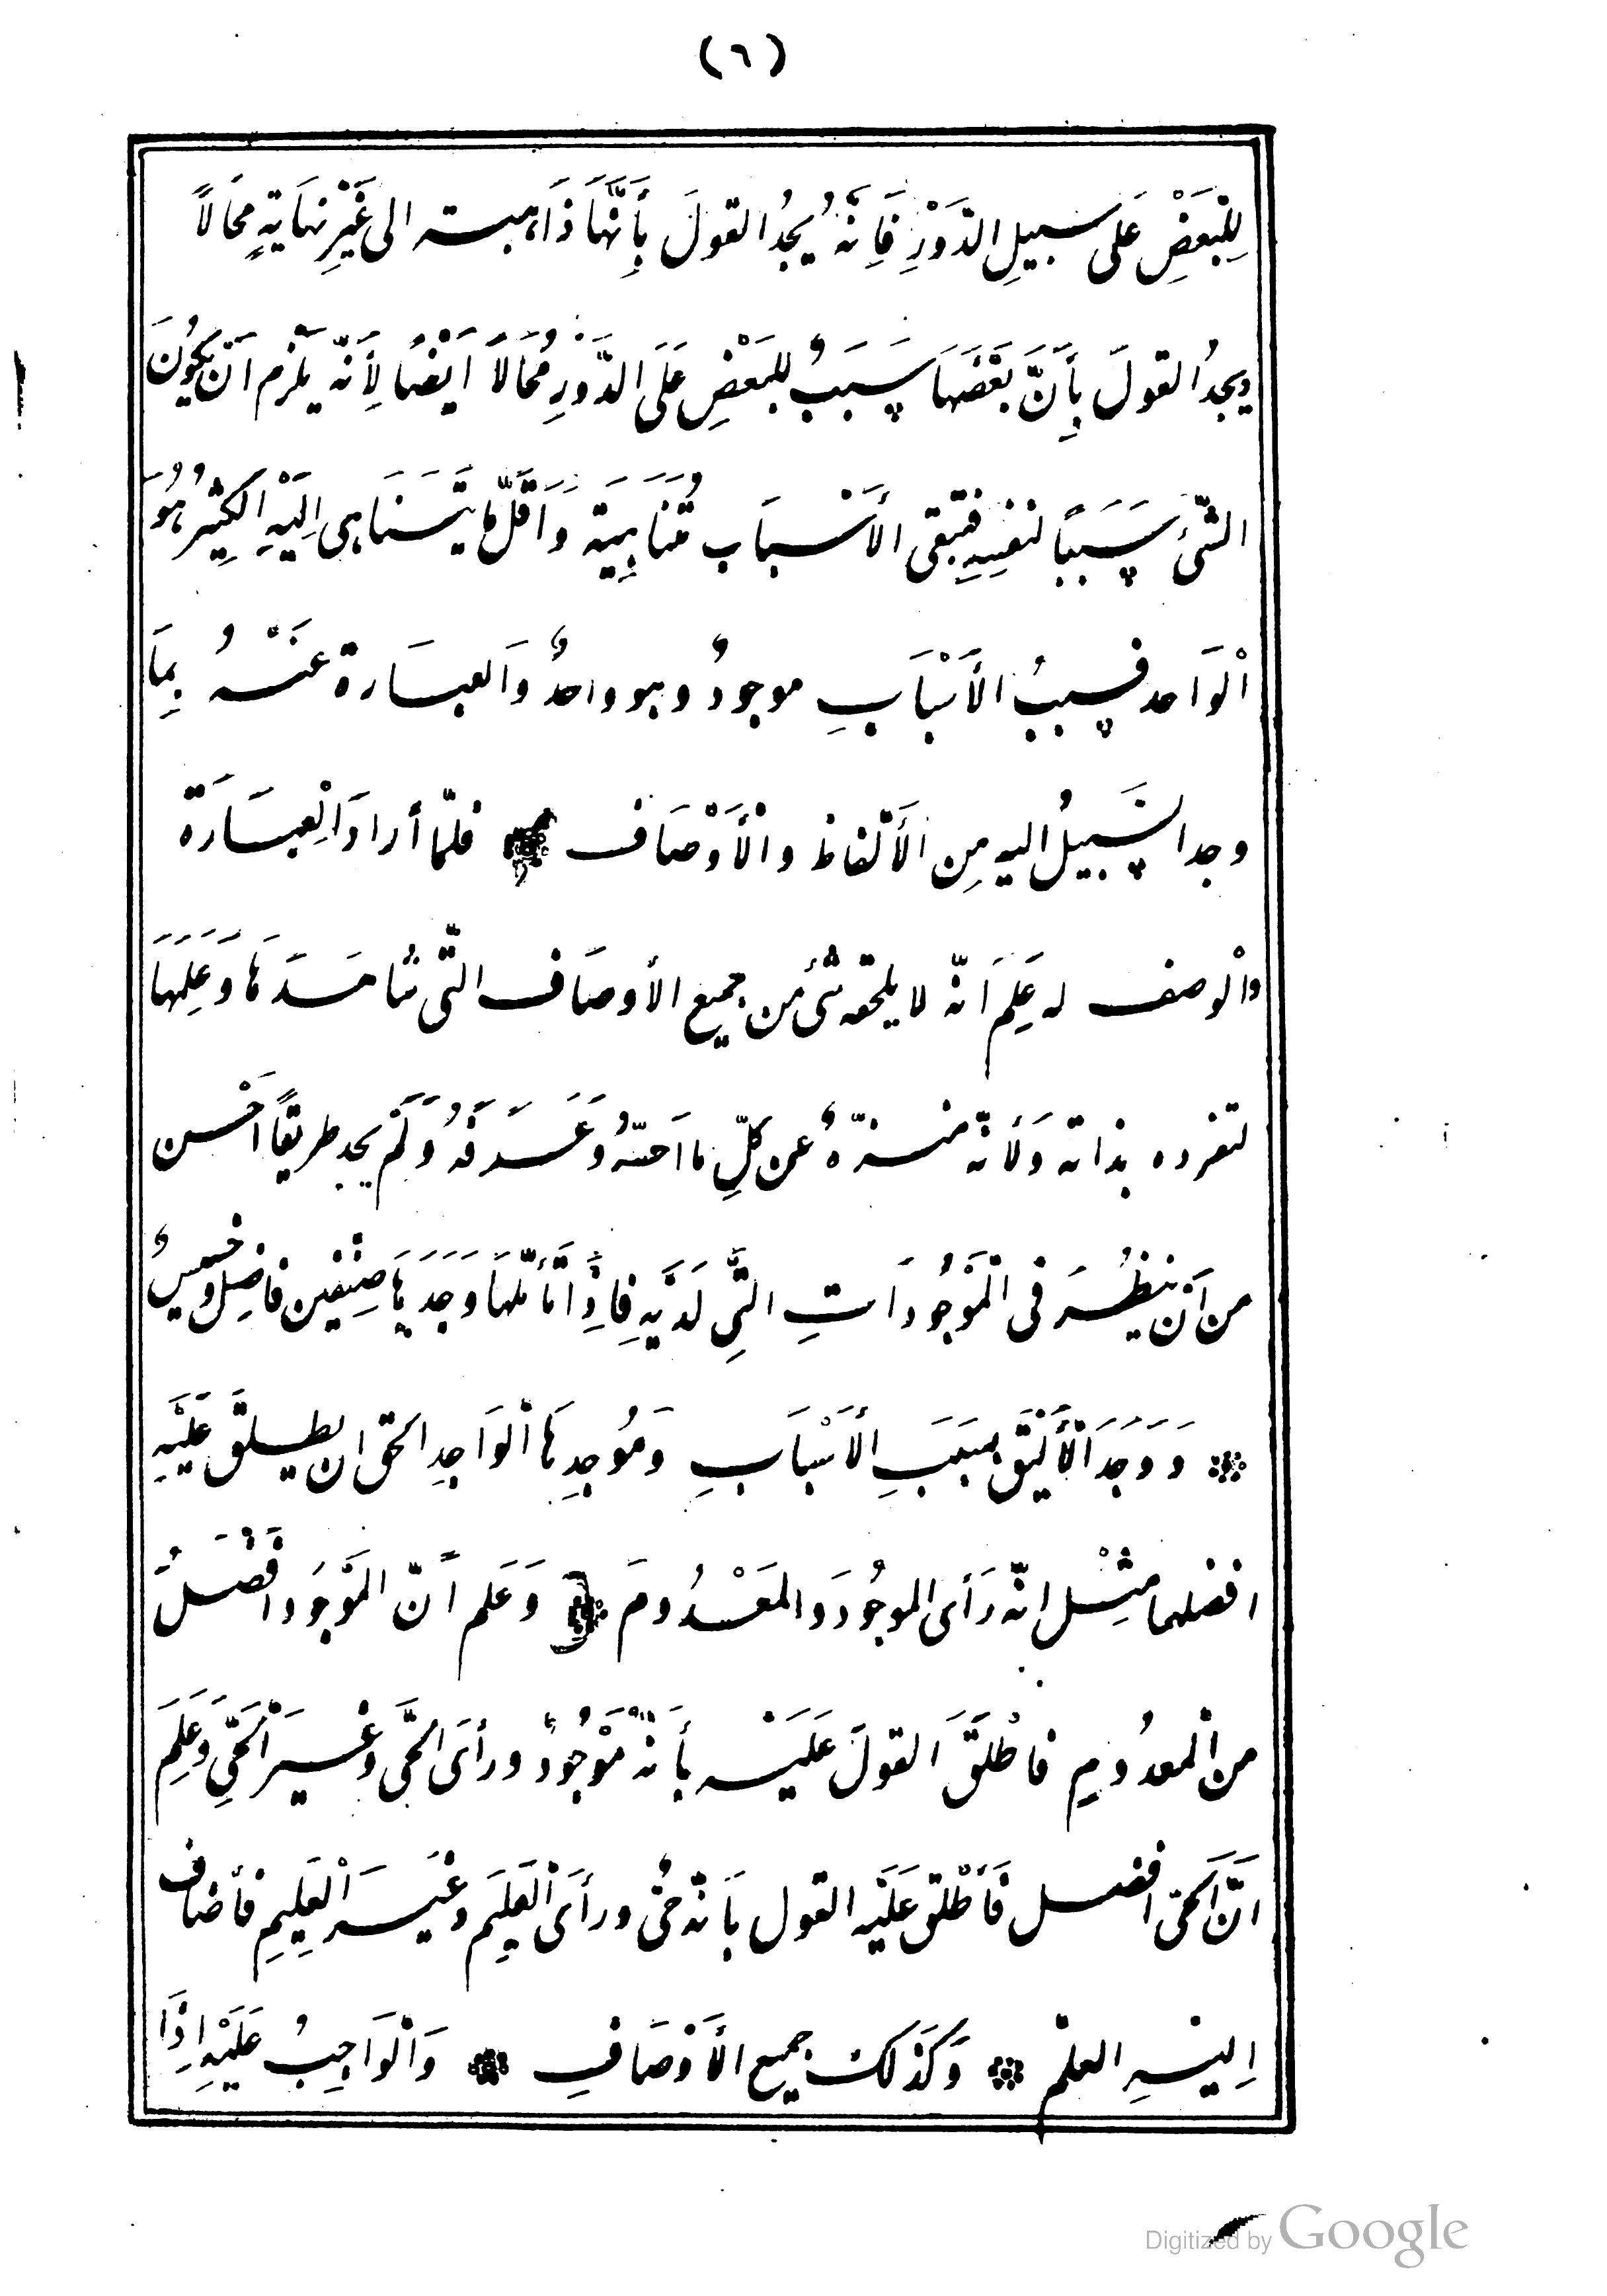 (٦)
لِلْبَعَضِ عَلى سبيلِ الدَّوْرِ فَاِنَّهُ يُجِدُ القولَ بِأَنَّهَا ذَاهبة الى غَيْرِ نِهَايَةٍ مُحَالاً
ويجدُ القولَ بِأَنَّ بَعْضَهَا سَبَبٌ لِلبَعْضِ عَلَى الدَّوْرِ مُحَالاً اَيْضًا لِأَنَّه يَلْزم اَنْ يَكُونَ
الشَّئُ سَبَبًا لنفسِهِ فتبقى الأَسْبَاب مُتَنَاهِيَة وَاَقَلّ مَا يَتَنَاهى اِلَيْهِ الكَثِيْرُ هُوَ
اْلوَاحد فسببُ الأَسْبَابِ موجودٌ وهو واحدٌ وَالعبَارة عَنْهُ بِمَا
وجد السَّبِيلُ اليه مِن الأَلْفاظ والْأَوْصَاف فلمّا أراد اَلْعِبَارَة
واْلوصف له عَلِمَ اَنّه لا يلحقه شئ من جميع الأوصَاف التّى شَاهَدَهَا وَعَلِمَهَا
لتفرده بذاته وَلأنّه منزّهٌ عن كلِّ ما اَحسّهُ وَعَرَفَهُ وَلَمْ يجد طريقًا اَحْسن
من اَنْ يَنْظُرَ فى الْمَوْجُودَاتِ التَّى لَدَيْهِ فَاِذَا تَأَمَّلَهَا وَجَدَهَا صِنْفين فاضِل وخسِيسٌ
وَوَجَدَ الْأَلْيَقَ بِسَبَبِ الأَسْبَابِ وَمُوجِدِهَا اْلوَاجِدِ الحق ان يطلق عَلَيْهِ
افضلهما مثِْل انّه رَأى الموجُودَ والمَعْدُومَ وَعَلم اَنّ المَوْجُود افْضَلُ
من اْلمعدُومِ فاطْلَقَ القولَ عَلَيْه بأَنّهُ مَوْجُودٌ ورأىَ الحَّى وغيرَ اْلحَىِّ وَعَلِمَ
انّ الحَىّ افضل فَأَطْلق عَلَيْه القول بَأنّه حَىٌّ ورأىَ اْلعَلِيَم وغَيرَ اْلعَلِيمِ فأضاف
اِليهِ العلْم وَكَذلكَ جميع الأَوْصَافِ وَاْلوَاجِبُ عَلَيْهِ اِذَا
Digitized by Google